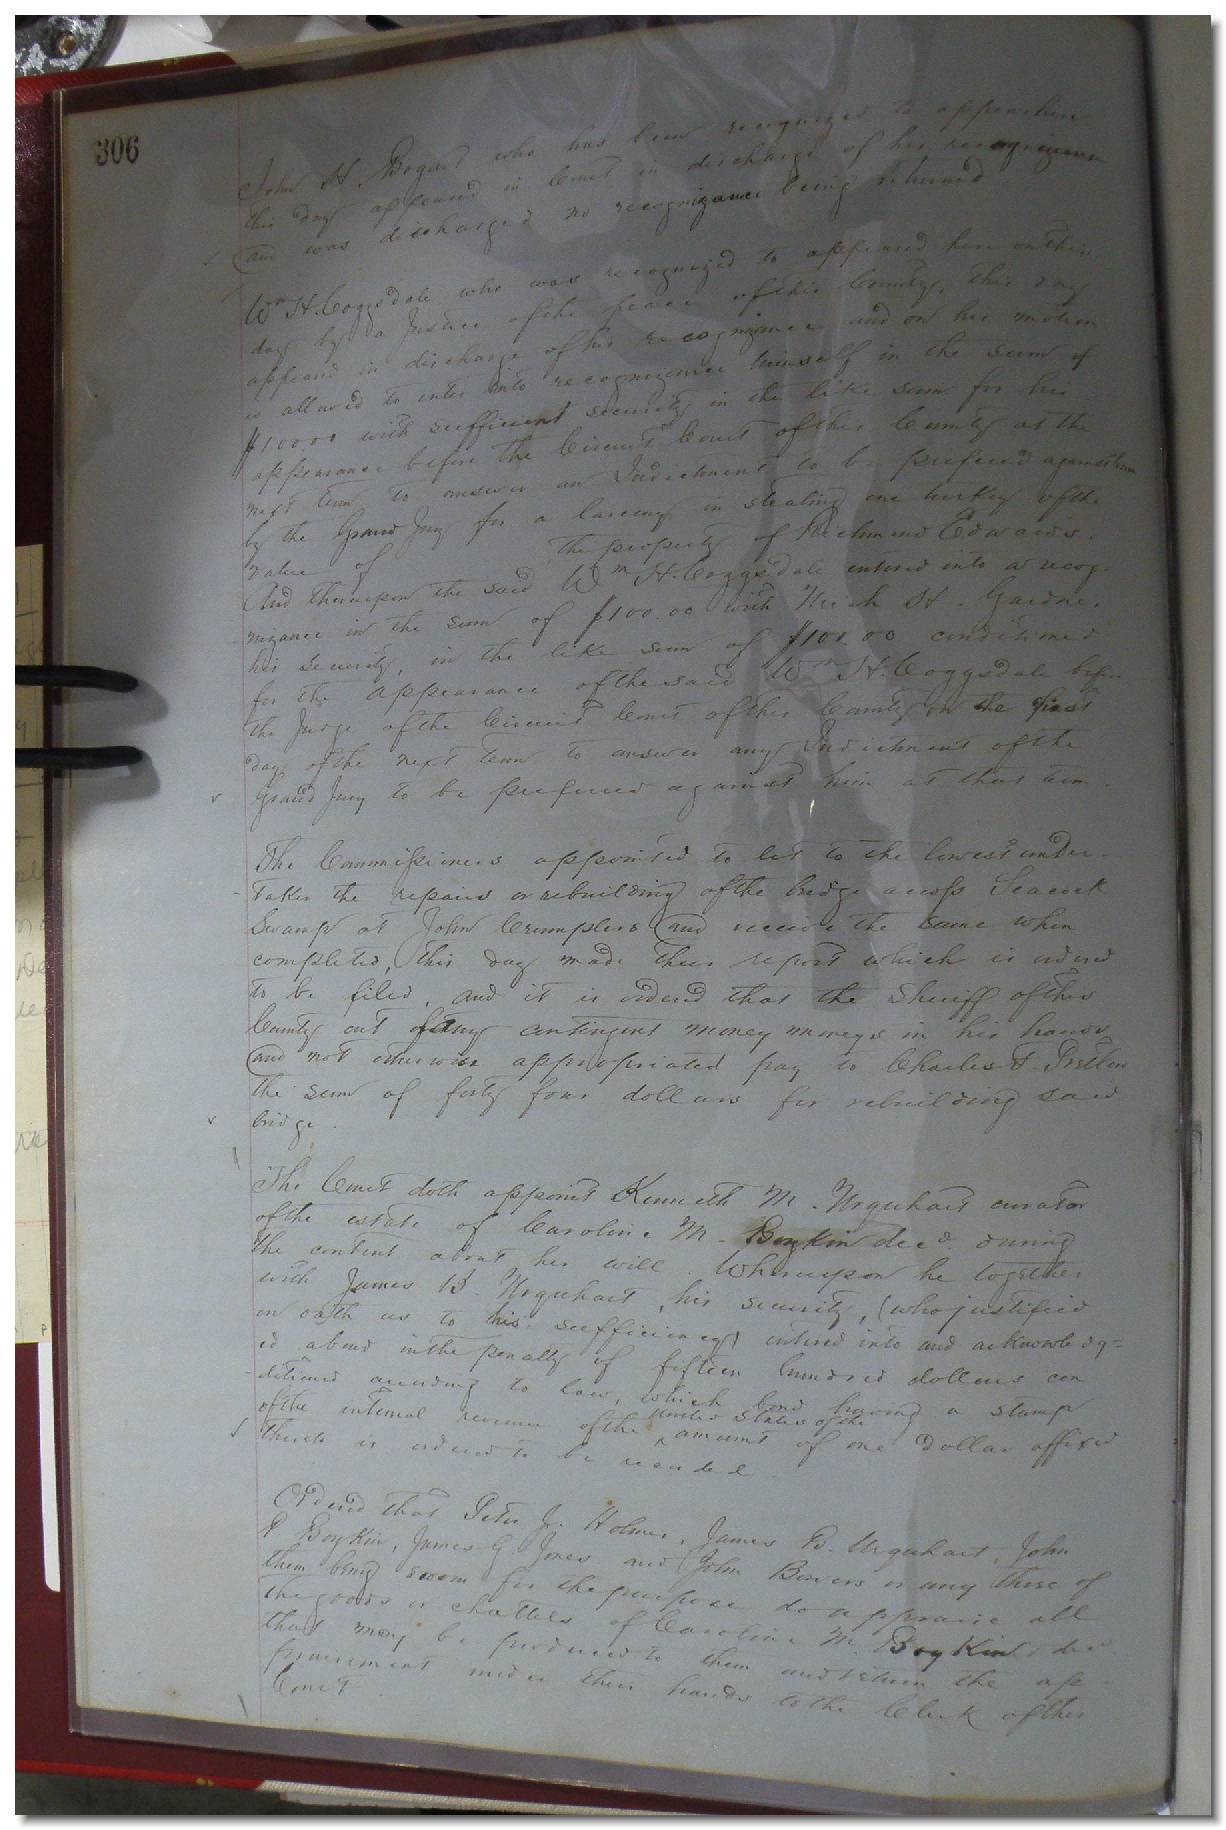 306
John H. Bogart who has been recognized to appear here
this day appeared in Court in discharge of his recognizance
and was discharged no recognizance being returned
Wm H. Coggsdale who was recognized to appeared here on this
day by a Justice of the peace of this County, this day
appeared in discharge of his recognizance and on his motion
is allowed to enter into recognizance himself in the sum of
$100.00 with sufficient security in the like sum for his
appearance before the Circuit Court of this County at the
next term to answer an Indictment to be prefered against him
by the Grand Jury for a larceny in stealing one turkey of the
value of the property of Richmond Edwards.
And thereupon the said Wm H. Coggsdale entered into a recog-
nizance in the sum of $100.00 with H. Gardner
his security, in the like sum of $100.00 conditioned
for the appearance of the said Wm H. Coggsdale before
the Judge of the Circuit Court of this County on the first
day of the next term to answer any Indictment of the
Grand Jury to be prefered against him at that term.
The Commissioners appointed to let to the lowest under-
taker the repairs or rebuilding of the bridge across Seacock
Swamp at John Crumplers and receive the same when
completed, this day made their report which is ordered
to be filed, and it is ordered that the Sheriff of this
County out of any contingent money moneys in his hands
and not otherwise appropriated pay to Charles F.
the sum of forty four dollars for rebuilding said
bridge.
The Court doth appoint Kenneth M. Urquhart curator
of the estate of Caroline M. Boykin decd. during
the contest about her will. Whereupon he together
with James B. Urquhart, his security, (who justified
on oath as to his sufficiency) entered into and acknowledg-
ed a bond in the penalty of fifteen hundred dollars con
ditioned according to law, which bond having a stamp
of the internal revenue of the United States of the amount of one dollar affixed
thereto is ordered to be recorded.
Ordered that Peter J. Holmes, James B. Urquhart, John
P Boykin, James G. Jones and John Bowers or any three of
them being sworn for the purpose do appraise all
the goods or chattels of Caroline M. Boykin, decd
that may be produced to them and return the ap-
praisement under their hands to the Clerk of this
Court.